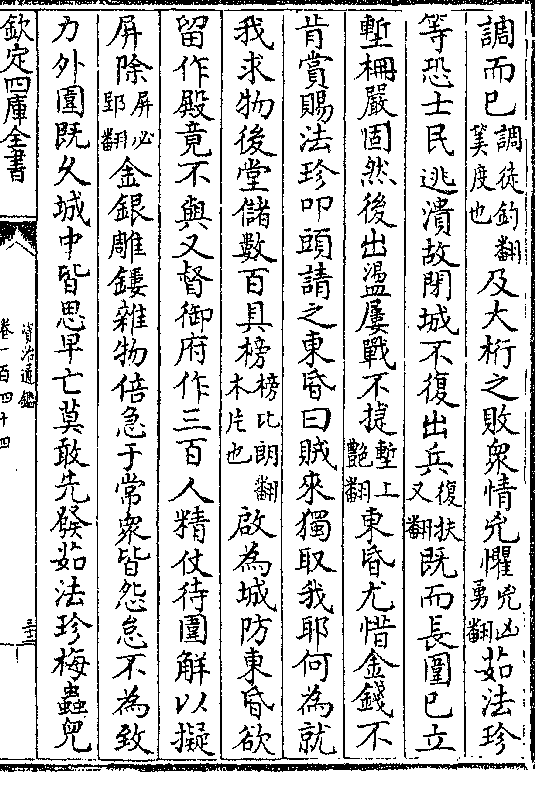 調而已調徒釣翻筭度也及大桁之敗衆情兇懼兇凶勇翻茹法珍
等恐士民逃潰故閉城不復出兵復扶又翻既而長圍已立
塹柵嚴固然後出盪屢戰不捷塹上艷翻東昏尤惜金錢不
肯賞賜法珍叩頭請之東昏曰賊來獨取我耶何為就
我求物後堂儲數百具榜榜比朗翻木片也啟為城防東昏欲
留作殿竟不與又督御府作三百人精仗待圍解以擬
屏除屏必郢翻金銀雕鏤雜物倍急于常衆皆怨怠不為致
力外圍既久城中皆思早亡莫敢先發茹法珍梅蟲兒
欽定四庫全書
資治通鑑
卷一百四十四